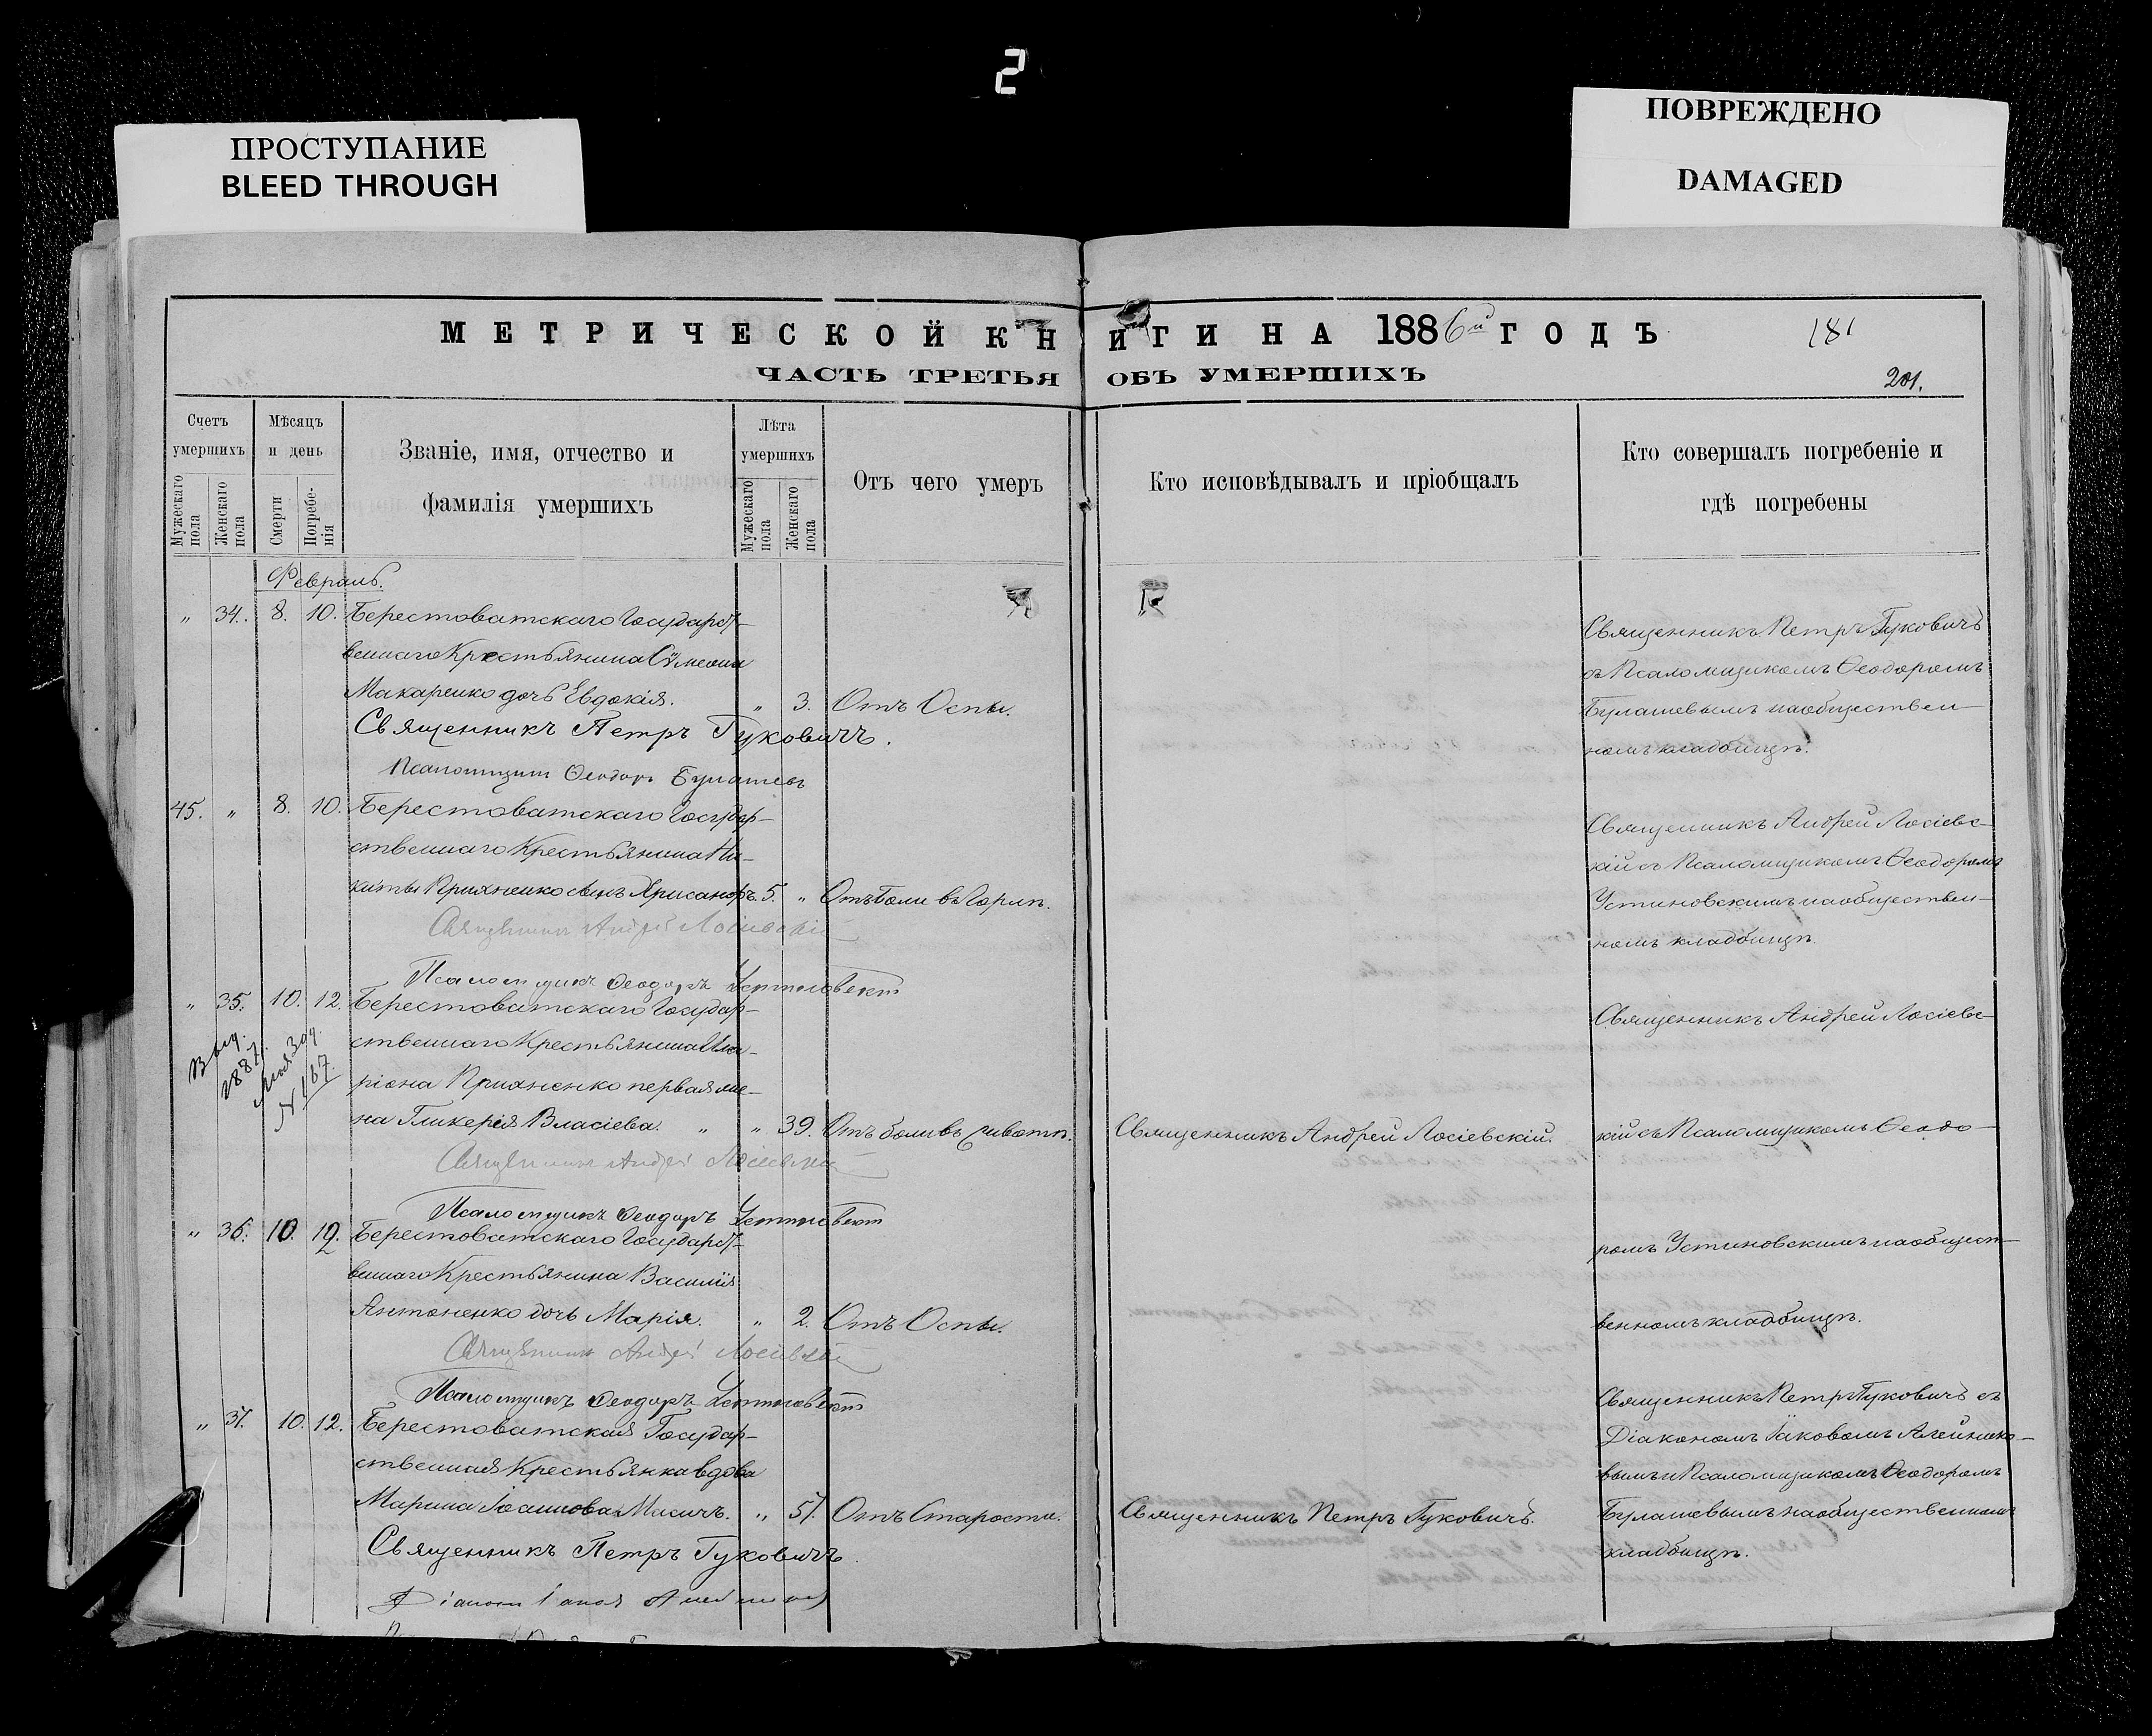 2
ПРОСТУПАНИЕ
BLEED THROUGH
ПОВРЕЖДЕНО
DAMAGED
МЕТРИЧЕСКОЙ КНИГИ НА 1886й ГОДЪ
181
ЧАСТЬ ТРЕТЬЯ ОБЪ УМЕРШИХЪ
201.
Счетъ умершихъ
Мужескаго пола
Женскаго пола
Мѣсяцъ и день
Смерти
Погребе-нія
Званіе, имя, отчество и
фамилія умершихъ
Лѣта умершихъ
Мужескаго пола
Женскаго пола
Отъ чего умеръ
Кто исповѣдывалъ и пріобщалъ
Кто совершалъ погребеніе и
гдѣ погребены
Февраль.
" 34. 8. 10. Берестоватскаго Государст-
веннаго Крестьянина Сѵмеона
Макаренко дочь Евдокія. " 3. Отъ Оспы.
Священникъ Петръ Гуковичъ
съ Псаломщикомъ Ѳеодоромъ
Булашевымъ на обществен-
номъ кладбищѣ.
Священникъ Петръ Гуковичъ.
Псаломщикъ Ѳеодоръ Булашевъ
45. " 8. 10. Берестоватскаго Государ-
ственнаго Крестьянина Ни-
киты Прихненко сынъ Хрисанѳъ. 5. " Отъ боли въ горлѣ.
Священникъ Андрей Лосіевс-
кій съ Псаломщикомъ Ѳеодоромъ
Устиновскимъ на обществен-
номъ кладбищѣ.
Священникъ Андрей Лосіевскій
Псаломщикъ Ѳеодоръ Устиновскій
" 35. 10. 12. Берестоватскаго Государ-
ственнаго Крестьянина Ила-
ріона Прихненко первая же-
на Гликерія Власіева. " " 39. Отъ боли въ животѣ. Священникъ Андрей Лосіевскій.
Выд.
1887.
мая 30 д.
№ 167
Священникъ Андрей Лосіевс-
кій съ Псаломщикомъ Ѳеодо-
Священникъ Андрей Лосіевскій
Псаломщикъ Ѳеодоръ Устиновскій
" 36. 10. 12. Берестоватскаго Государст-
веннаго Крестьянина Василія
Антоненко дочь Марія. " 2. Отъ Оспы.
ромъ Устиновскимъ на общест-
венномъ кладбищѣ.
Священникъ Андрей Лосіевскій
Псаломщикъ Ѳеодоръ Устиновскій
" 37. 10. 12. Берестоватская Государ-
ственная Крестьянка вдова
Марина Іоаннова Масичъ. " 57. Отъ Старости. Священникъ Петръ Гуковичъ.
Священникъ Петръ Гуковичъ съ
Діакономъ Іаковомъ Алейнико-
вымъ и Псаломщикомъ Ѳеодоромъ
Булашевымъ на общественномъ
кладбищѣ.
Священникъ Петръ Гуковичъ.
Діаконъ Іаковъ Алейниковъ